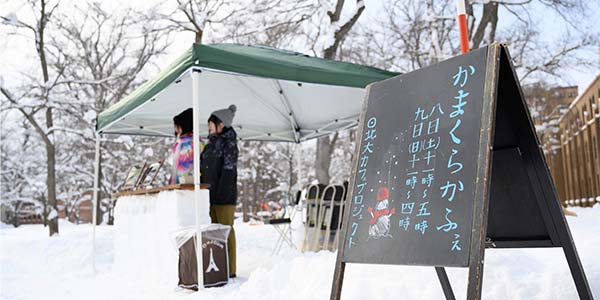 かまくらかふぇ
八日(土)十一時〜五時
九日(日)十一時〜四時
北大カフェプロジェクト